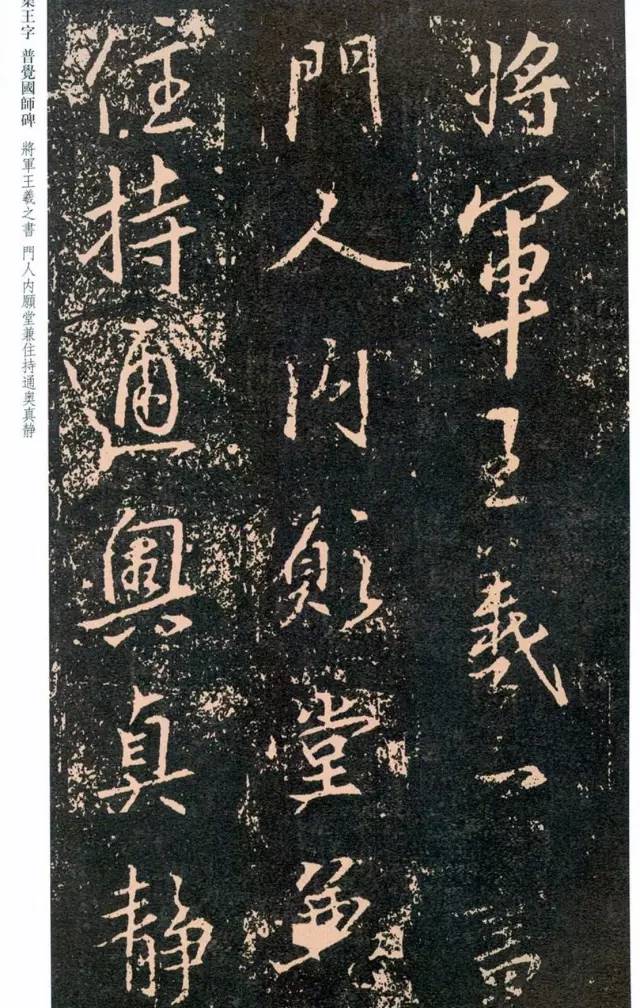 將軍王羲之書
門人内願堂兼
住持通奥真静
集王字 普覺國師碑 將軍王羲之書 門人内願堂兼住持通奥真静